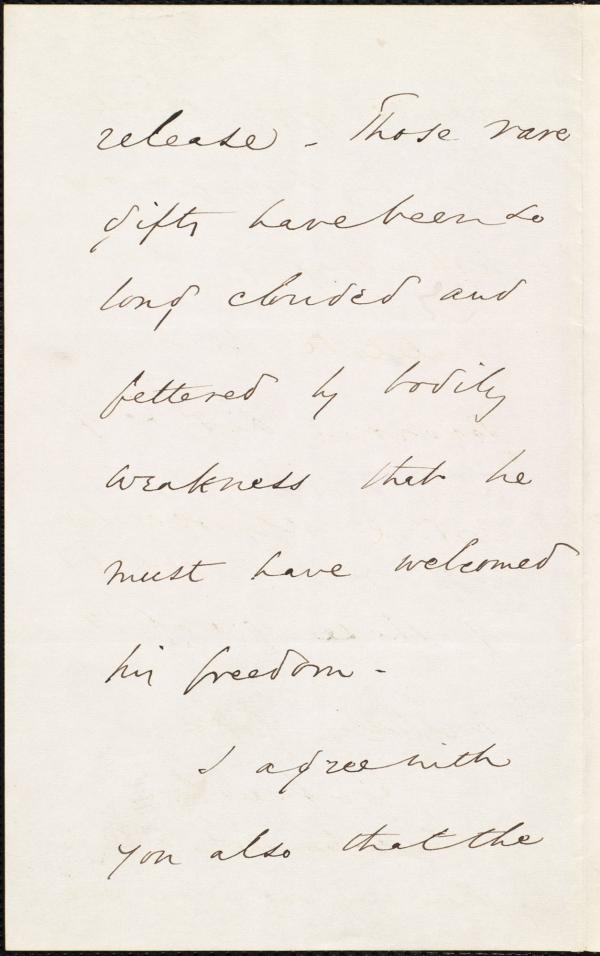 release - Those rare
gifts have been so
long clouded and
fettered by bodily
weakness that he
must have welcomed
his freedom -
I agree with
you also that the